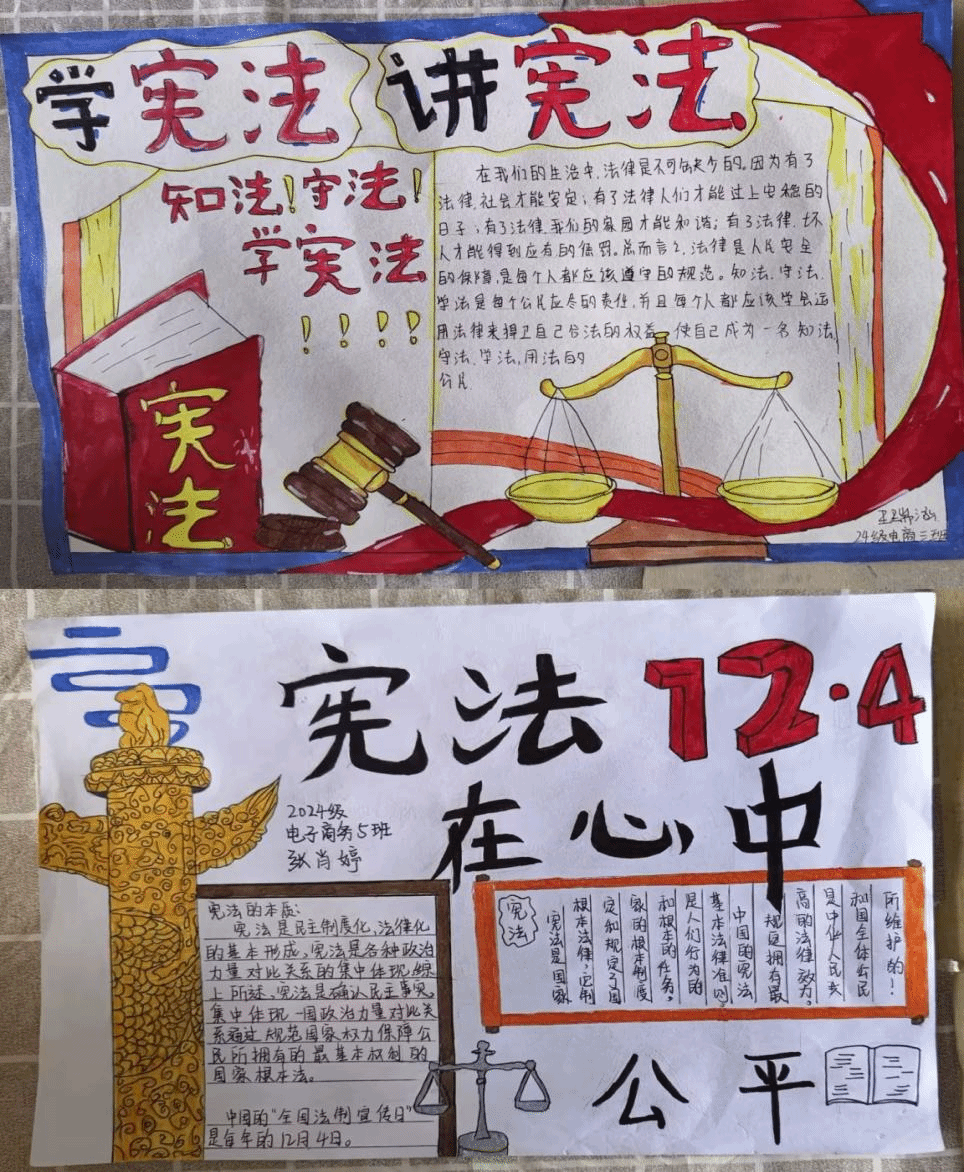 学宪法 讲宪法
知法!守法!
学宪法
!!!!
在我们的生活中,法律是不可缺少的。因为有了
法律,社会才能安定;有了法律人们才能过上安稳的
日子;有了法律,我们的家园才能和谐;有了法律,坏
人才能得到应有的惩罚。总而言之,法律是人民安全
的保障,是每个人都应该遵守的规范。知法、守法、
学法是每个公民应尽的责任,并且每个人都应该学会运
用法律来捍卫自己合法的权益,使自己成为一名知法,
守法、学法,用法的
公民
宪
法
24级电商三班
宪法 12·4
在心中
2024级
电子商务5班
张肖婷
宪法的本质:
宪法是民主制度化,法律化
的基本形成,宪法是各种政治
力量对比关系的集中体现,综
上所述,宪法是确认民主事实,
集中体现一国政治力量对比关
系通过规范国家权力保障公
民所拥有的最基本权利的
国家根本法。
中国的“全国法制宣传日”
是每年的12月4日。
宪法
宪法是国家
根本法律,它制
定和规定了国
家的根本制度
和根本的任务,
是人们行为的
基本法律准则,
中国的宪法
规定拥有最
高的法律效力。
是中华人民共
和国全体公民
所维护的!
公平